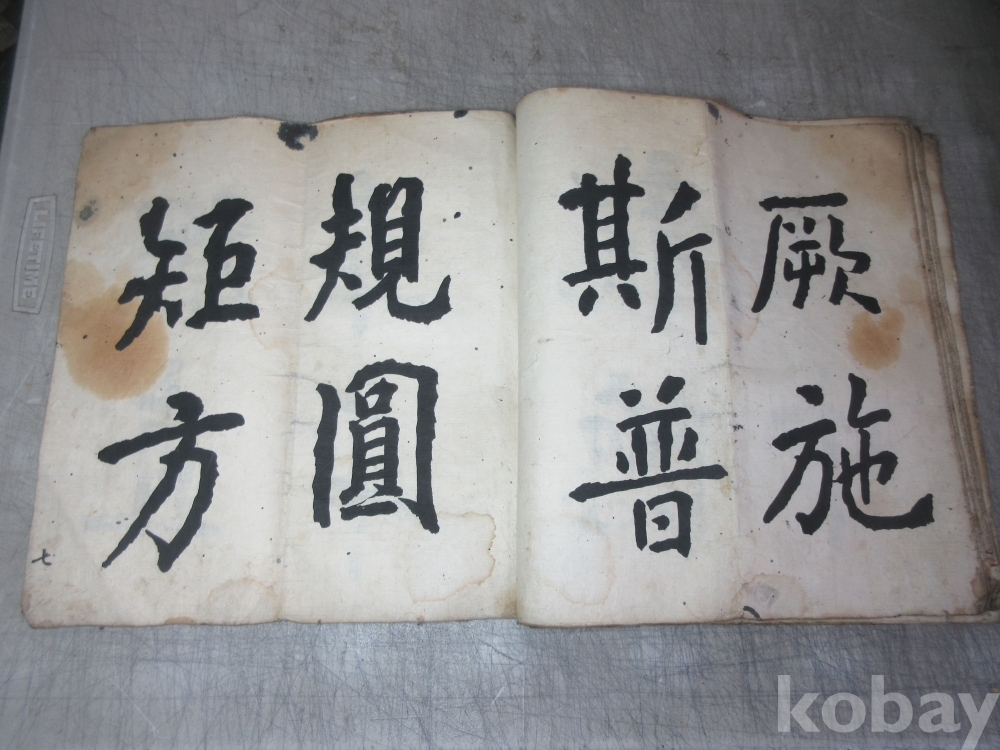 厥施
斯普
規圓
矩方
七
LIFETIME
kobay